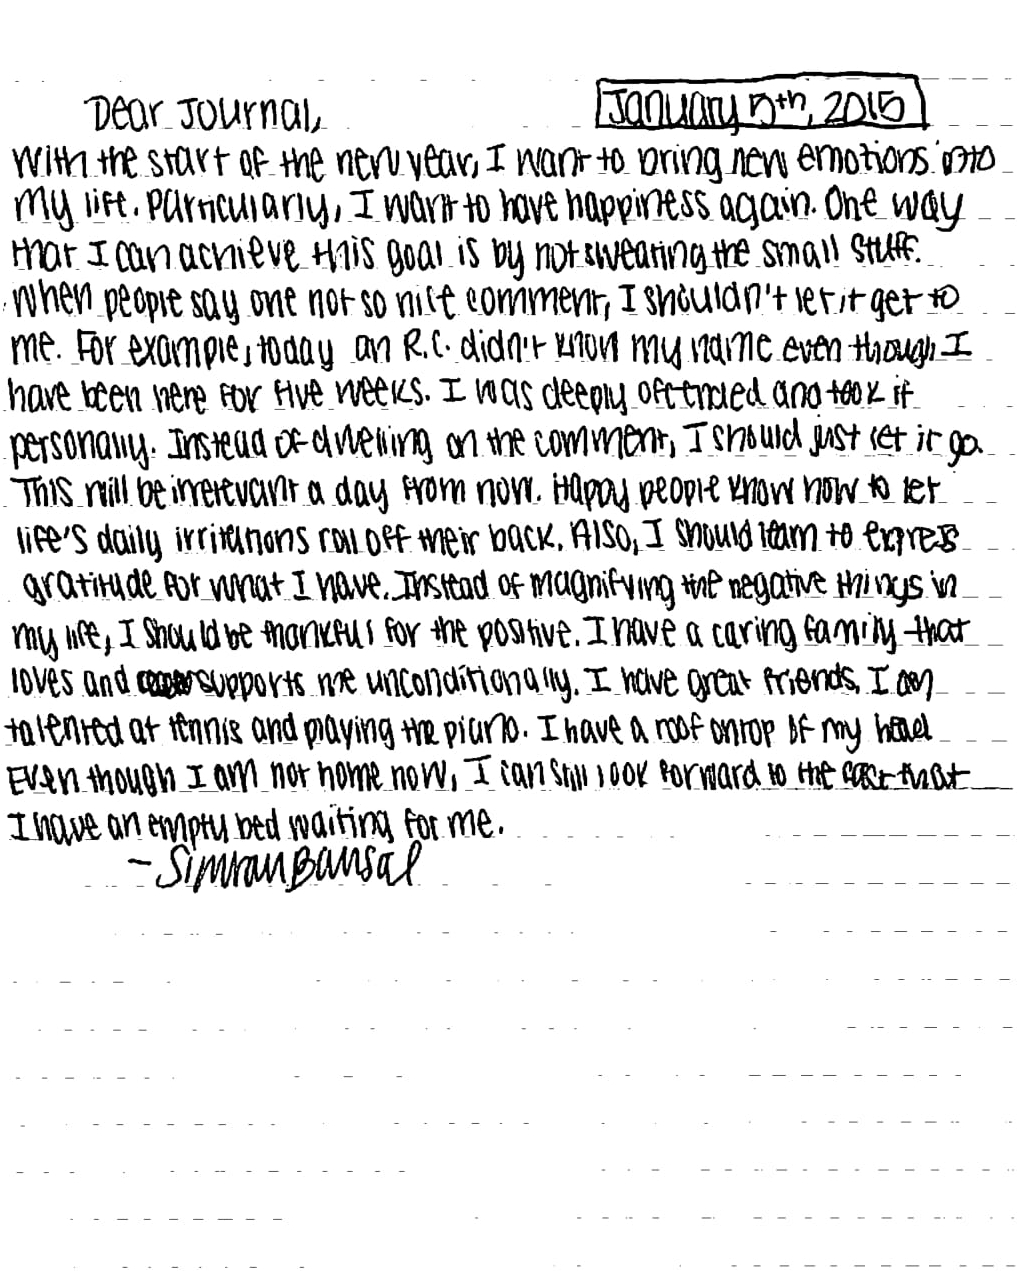 Dear Journal,
January 5th, 2015
With the start of the new year, I want to bring new emotions into
my life. Particularly, I want to have happiness again. One way
that I can achieve this goal is by not sweating the small stuff.
When people say one not so nice comment, I shouldn't let it get to
me. For example, today an R.C. didn't know my name even though I
have been here for five weeks. I was deeply offended and took it
personally. Instead of dwelling on the comment, I should just let it go.
This will be irrelevant a day from now. Happy people know how to let
life's daily irritations roll off their back. Also, I should learn to express
gratitude for what I have. Instead of magnifying the negative things in
my life, I should be thankful for the positive. I have a caring family that
loves and supports me unconditionally. I have great friends. I am
talented at tennis and playing the piano. I have a roof ontop of my head
Even though I am not home now, I can still look forward to the that
I have an empty bed waiting for me.
- Simran Bansal